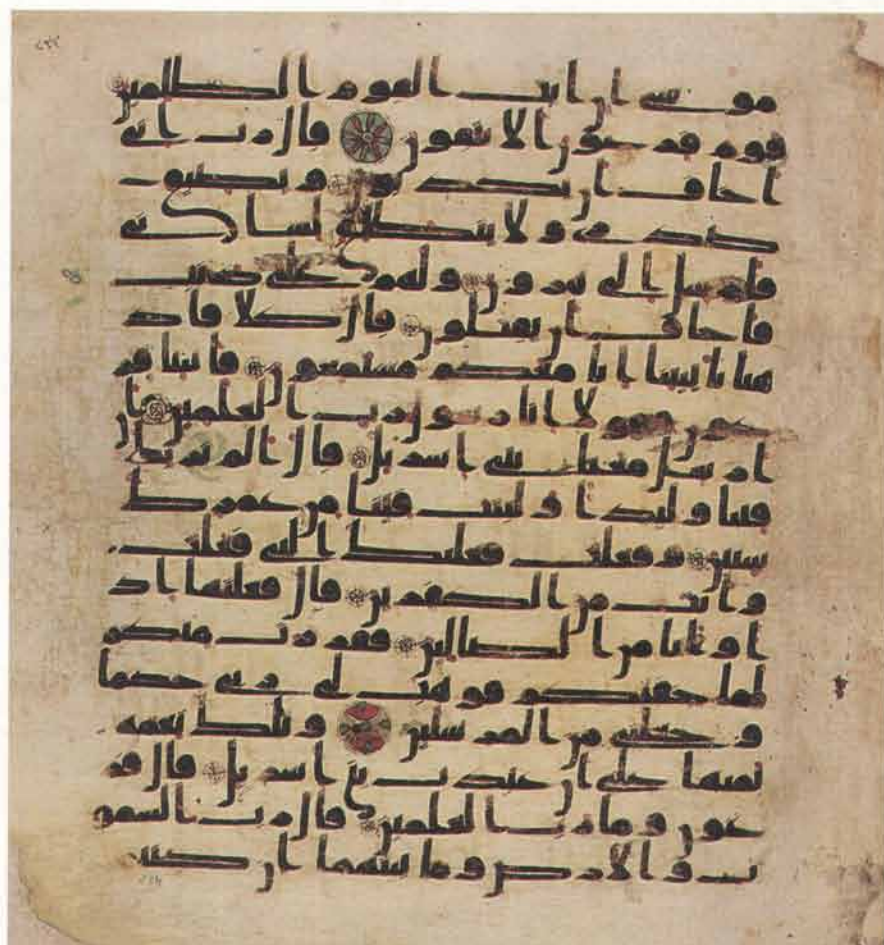 موسى ان ايت القوم الظلمين
قوم فرعون الا يتقون قال رب اني
اخاف ان يكذبون ويضيق
صدري ولا ينطلق لساني
فارسل الى هرون ولهم علي ذنب
فاخاف ان يقتلون قال كلا فاذ
هبا باييتنا انا معكم مستمعون فاتيا فر
عون فقولا انا رسول رب العلمين ان
ارسل معنا بني اسريل قال الم نربك
فينا وليدا ولبثت فينا من عمرك
سنين وفعلت فعلتك التي فعلت
وانت من الكفرين قال فعلتها اذ
ا وانا من الضالين ففررت منكم
لما خفتكم فوهب لي ربي حكما
وجعلني من المرسلين وتلك نعمة
تمنها علي ان عبدت بني اسريل قال فر
عون وما رب العلمين قال رب السمو
ت والارض وما بينهما ان كنتم